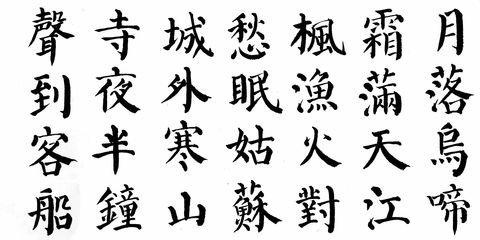 月落烏啼
霜滿天江
楓漁火對
愁眠姑蘇
城外寒山
寺夜半鐘
聲到客船